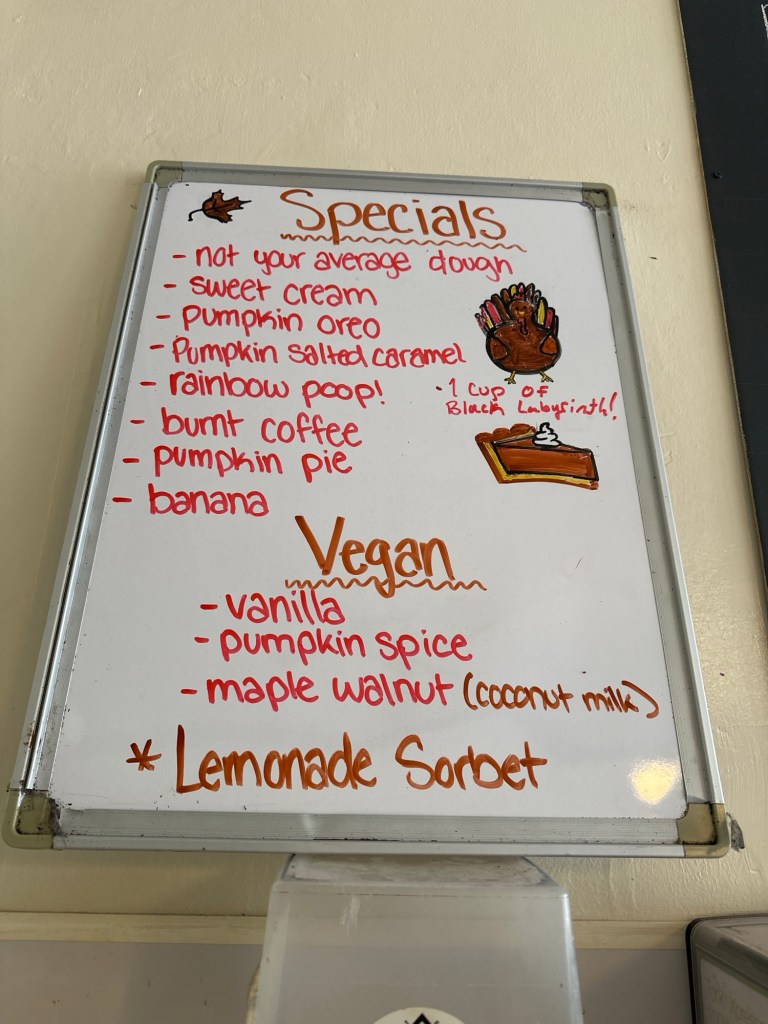 Specials
- not your average dough
- sweet cream
- pumpkin oreo
- Pumpkin salted caramel
- rainbow poop!
· 1 Cup of
Black Labyrinth!
- burnt coffee
- pumpkin pie
- banana
Vegan
- vanilla
- pumpkin spice
- maple walnut (coconut milk)
* Lemonade Sorbet